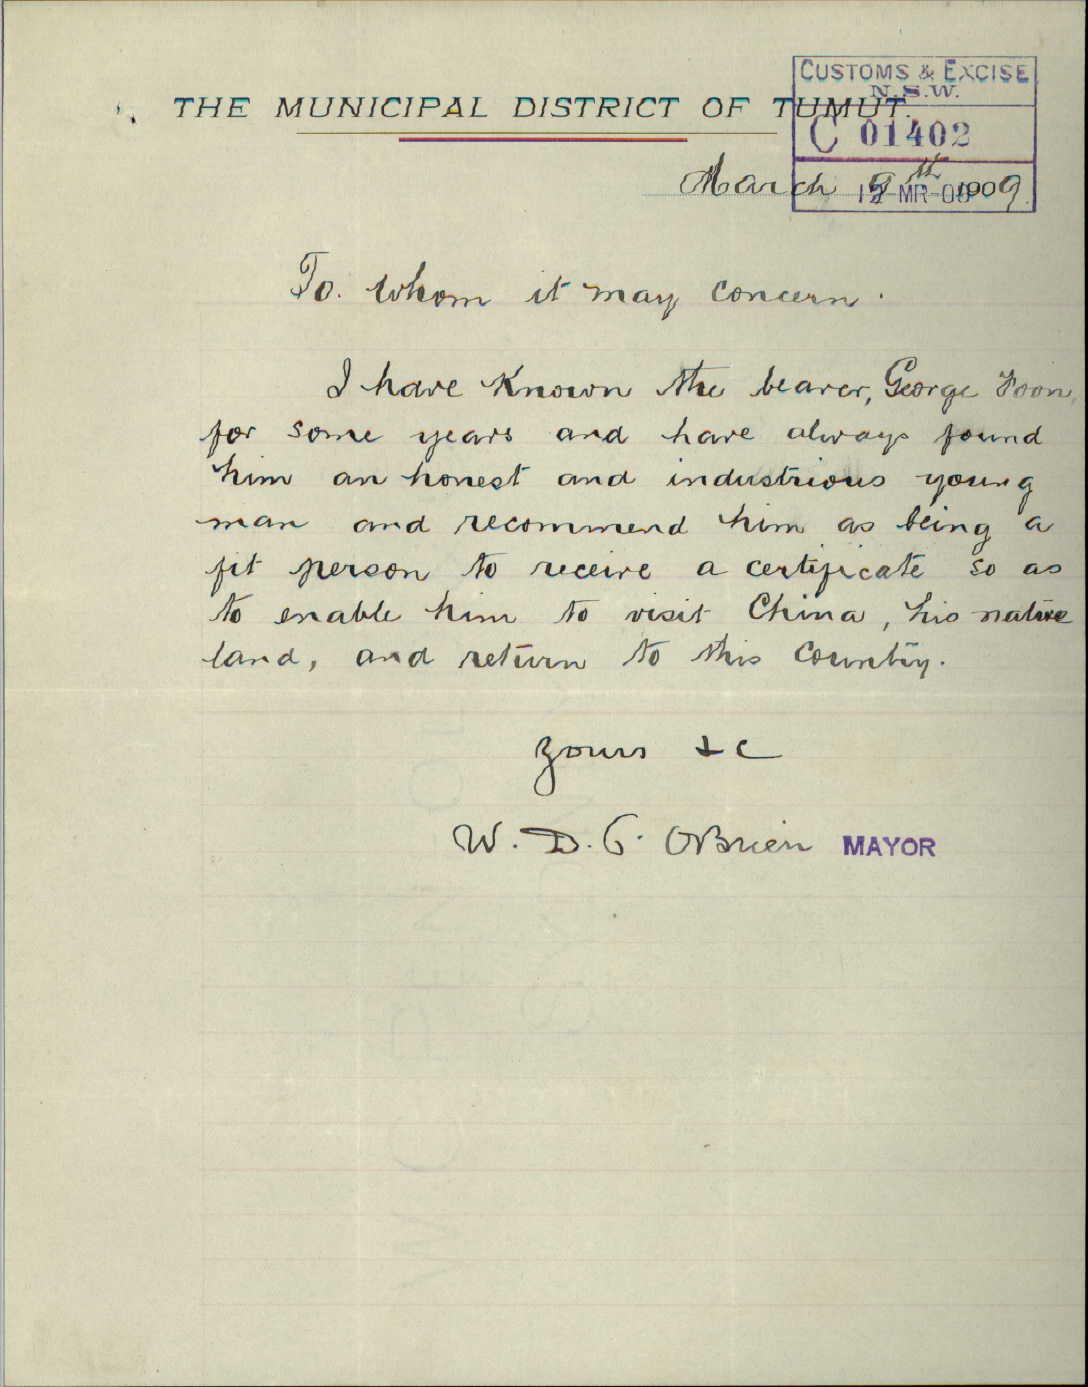 THE MUNICIPAL DISTRICT OF TUMUT.
CUSTOMS & EXCISE
N.S.W.
C 01402
March 9th 1909.
12 MR-09
To. whom it may concern.
I have known the bearer, George Foon,
for some years and have always found
him an honest and industrious young
man and recommend him as being a
fit person to receive a certificate so as
to enable him to visit China, his native
land, and return to this country.
yours &c
W. D. G. O'Brien MAYOR